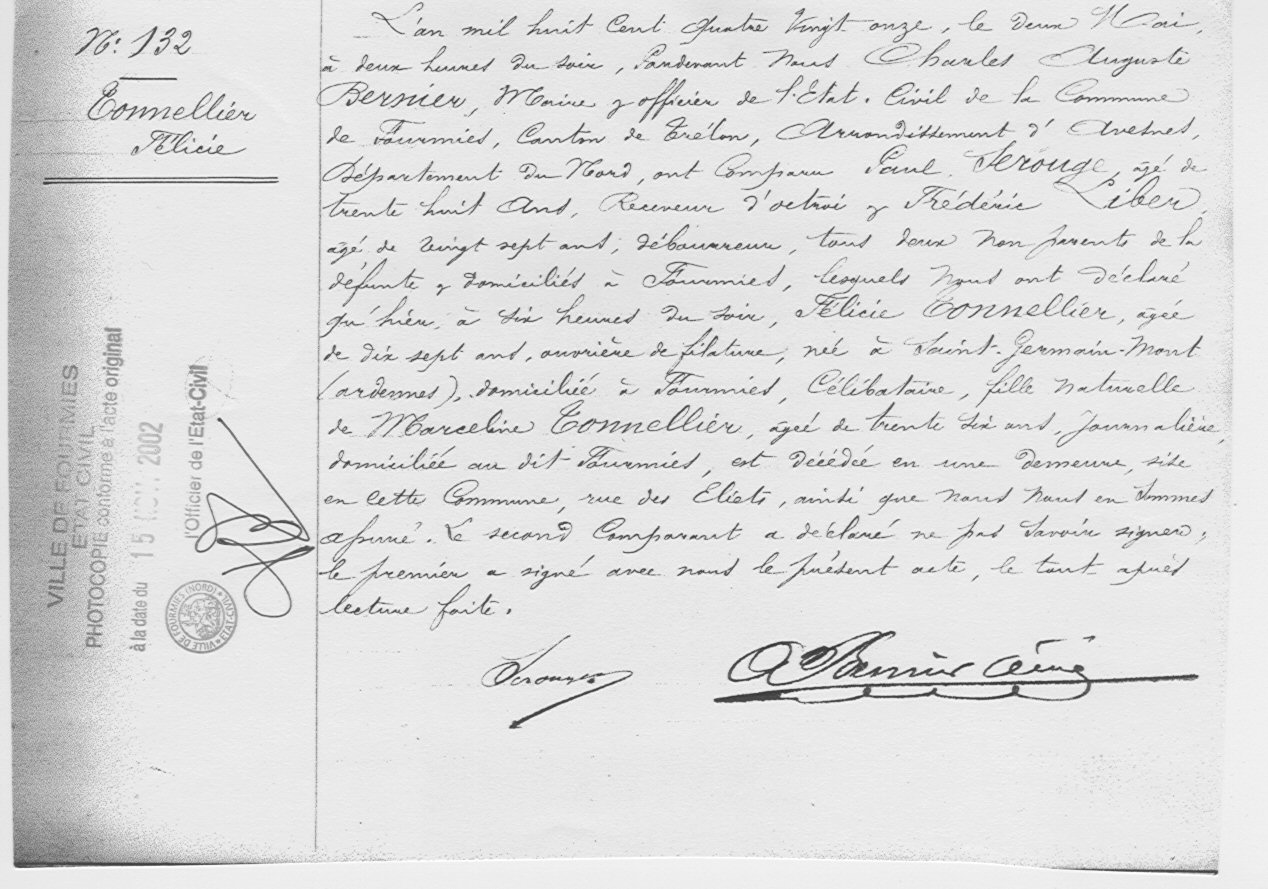 N: 132
Tonnelliér
Félicie
L'an mil huit Cent quatre vingt onze, le deux Mai,
à deux heures du soir, Pardevant Nous Charles Auguste
Bernier, Maire & officier de l'Etat-Civil de la Commune
de Fourmies, Canton de Trélon, Arrondissement d'Avesnes,
Département du Nord, ont Comparu Paul Serouge, âgé de
trente huit Ans, Receveur d'octroi & Frédéric Liber,
âgé de vingt sept ans, débourreur, tous deux non parents de la
défunte & domiciliés à Fourmies, lesquels Nous ont déclaré
qu'hier, à six heures du soir, Félicie Tonnelliér, âgée
de dix sept ans, ouvrière de filature, née à Saint-Germain-Mont
(ardennes), domiciliée à Fourmies, Célibataire, fille naturelle
de Marceline Tonnelliér, âgée de trente six ans, Journalière,
domiciliée au dit Fourmies, est décédée en une demeure, sise
en cette Commune, rue des Eliets, ainsi que nous nous en sommes
assuré. Le second Comparant a déclaré ne pas savoir signer,
le premier a signé avec nous le présent acte, le tout après
lecture faite.
Serouge
A Bernier
VILLE DE FOURMIES
ETAT CIVIL
PHOTOCOPIE conforme à l'acte original
à la date du 15 NOV. 2002
l'Officier de l'Etat-Civil
VILLE DE FOURMIES (NORD) ★ ETAT-CIVIL ★